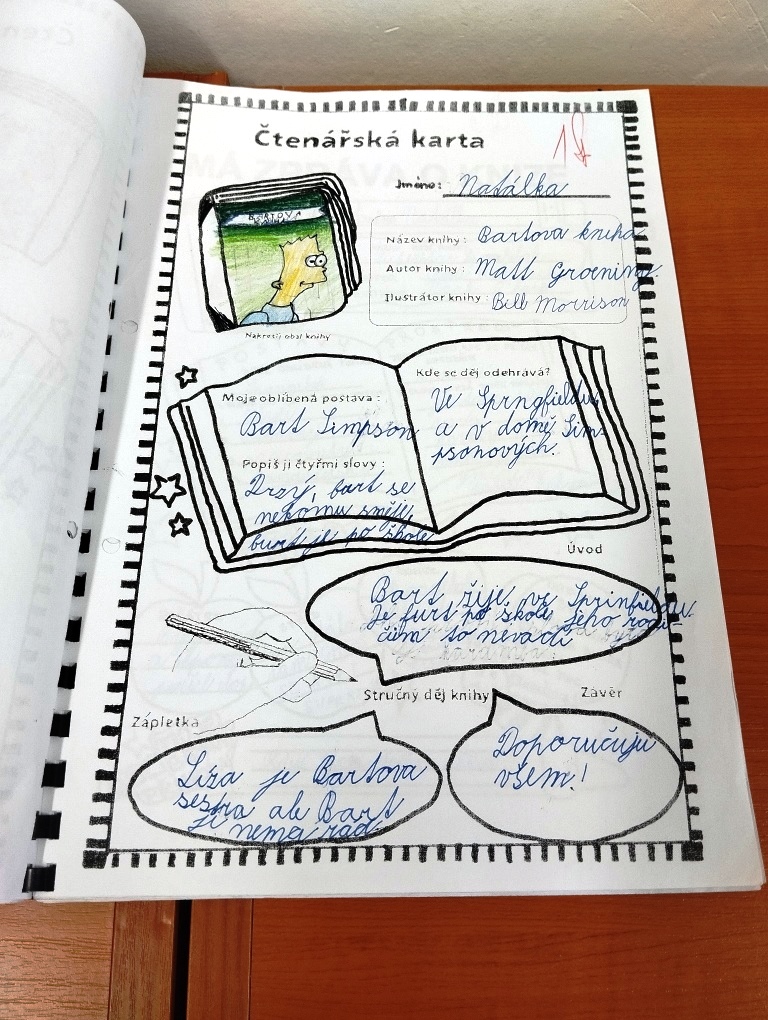 Čtenářská karta
1
Jméno: Natálka
BARTOVA
KNIHA
Název knihy: Bartova kniha
Autor knihy: Matt Groening
Ilustrátor knihy: Bill Morrison
Nakresli obal knihy
Moje oblíbená postava:
Bart Simpson
Popiš ji čtyřmi slovy:
Drzý, bart se
nekomu směje,
burt je po škole
Kde se děj odehrává?
Ve Sprngfieldu
a v domě Sim-
psonových.
Úvod
Bart žije ve Sprinfieldu.
Je furt po škole jeho rodi-
čům to nevadí
Stručný děj knihy
Zápletka
Líza je Bartova
sestra ale Bart
ji nemá rád
Závěr
Doporučuju
všem!